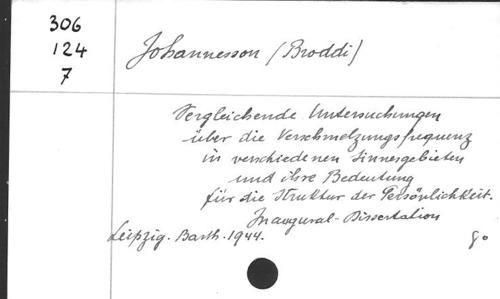 306
124
7
Johannesson (Broddi)
Vergleichende Untersuchungen
über die Verschmelzungsfrequenz
in verschiedenen Sinnesgebieten
und ihre Bedeutung
für die Struktur der Persönlichkeit.
Inaugural-Dissertation
Leipzig. Barth. 1944. 8o